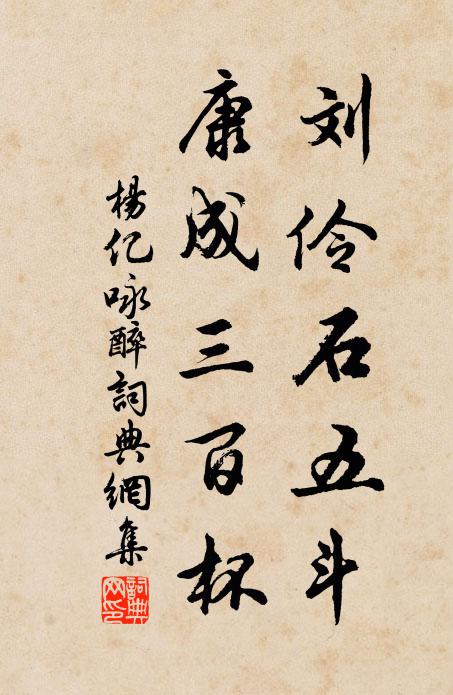 刘伶石五斗
康成三百杯
楊亿咏醉詞典網集
詞典网印